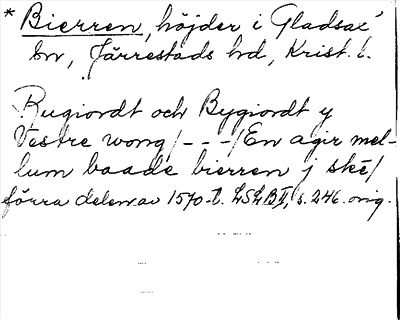 * Bierren, höjder i Gladsax'
sn, Järrestads hd, Krist. l.
Rugiordt och Bygiordt y
Vestre wong/---/En agir mel-
lum baade bierren j ské/
förra delen av 1570-t. LSLB II, s. 246. orig.